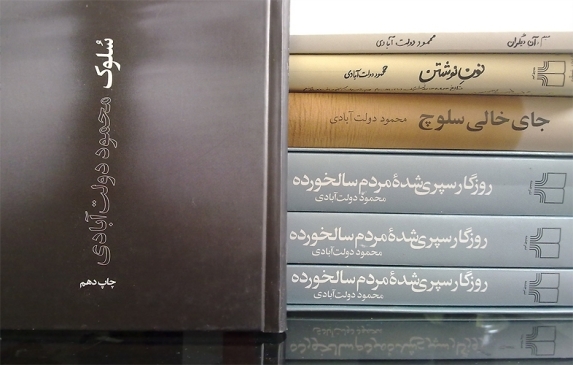 سُلوک محمود دولت‌آبادی
چاپ دهم
محمود دولت آبادی
نونِ نوشتن محمود دولت‌آبادی
جای خالی سلوچ محمود دولت‌آبادی
روزگار سپری‌شدهٔ مردم سالخورده
محمود دولت‌آبادی
روزگار سپری‌شدهٔ مردم سالخورده
محمود دولت‌آبادی
روزگار سپری‌شدهٔ مردم سالخورده
محمود دولت‌آبادی